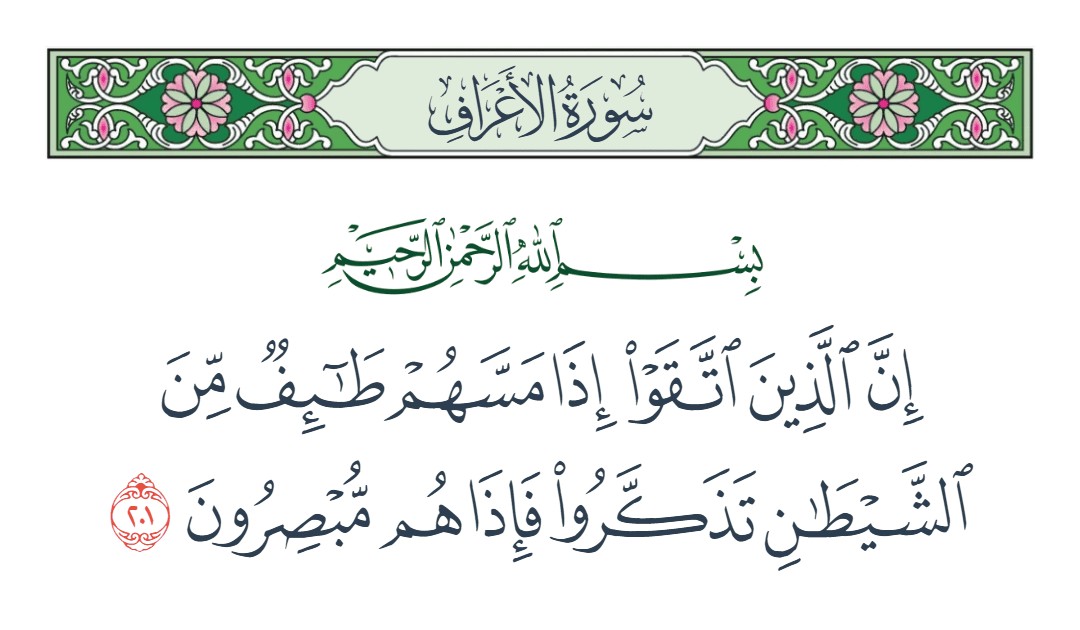 سُورَةُ الأَعْرَافِ
بِسْمِ ٱللَّهِ ٱلرَّحْمَٰنِ ٱلرَّحِيمِ
إِنَّ ٱلَّذِينَ ٱتَّقَوْا۟ إِذَا مَسَّهُمْ طَـٰٓئِفٌ مِّنَ
ٱلشَّيْطَـٰنِ تَذَكَّرُوا۟ فَإِذَا هُم مُّبْصِرُونَ ٢٠١